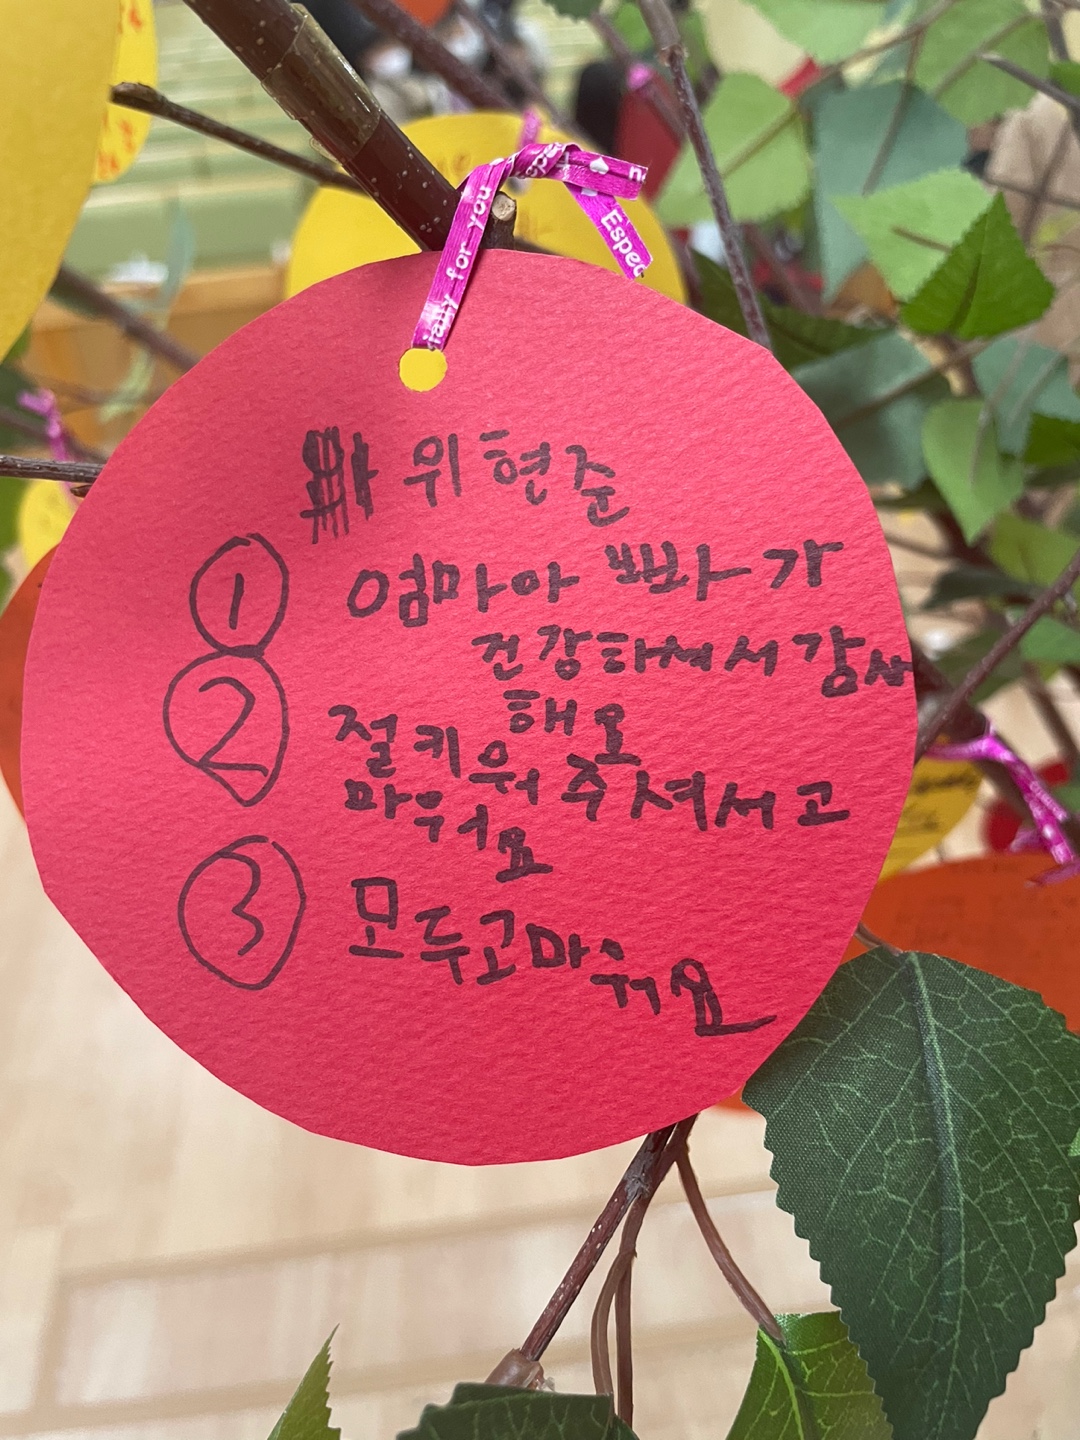 Especially for you
Espec
위현준
① 엄마아빠가
건강하셔서감사
해요
② 절키워주셔서고
마워요
③ 모두고마워요